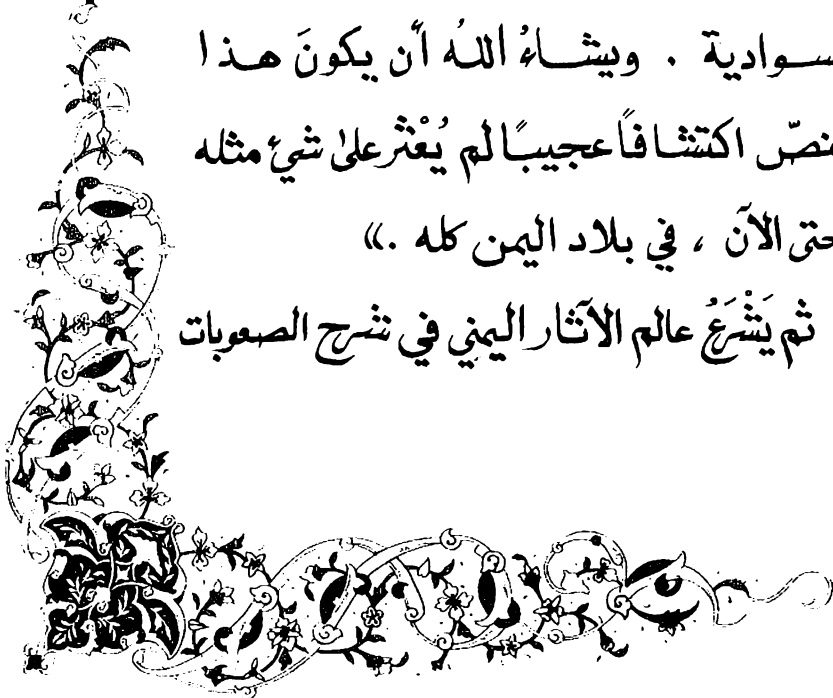 ـسـوادية . ويشـاءُ اللهُ أن يكونَ هـذا
ـنصّ اكتشافاً عجيبًا لم يُعْثر علىٰ شيءٍ مثله
حتى الآن ، في بلاد اليمن كله .»
ثم يَشْرَعُ عالم الآثار اليمني في شرح الصعوبات